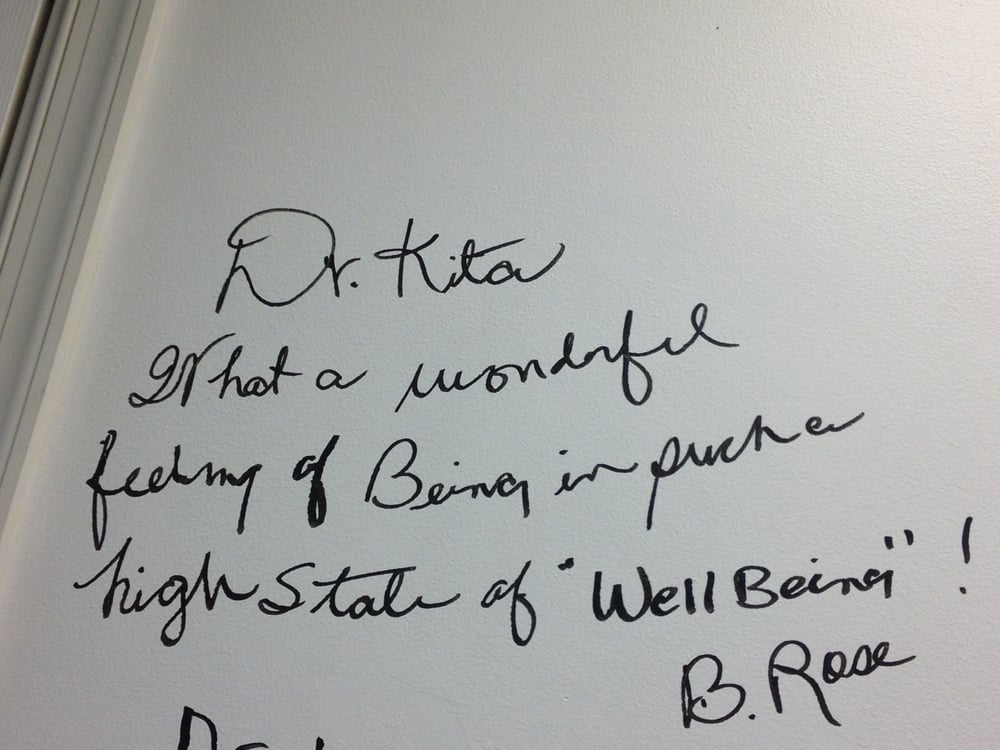 Dr. Kita
What a wonderful
feeling of Being in such a
high State of "Well Being"!
B. Rose